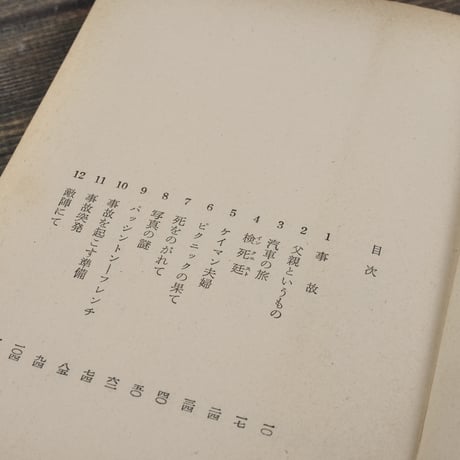 目次
1 事故 一〇
2 父親というもの 一七
3 汽車の旅 二四
4 検死廷 三四
5 ケイマン夫婦 四〇
6 ピクニックの果て 五〇
7 死をのがれて 六二
8 写真の謎 七四
9 バッシントン―フレンチ 八五
10 事故を起こす準備 九四
11 事故突発 一〇四
12 敵陣にて